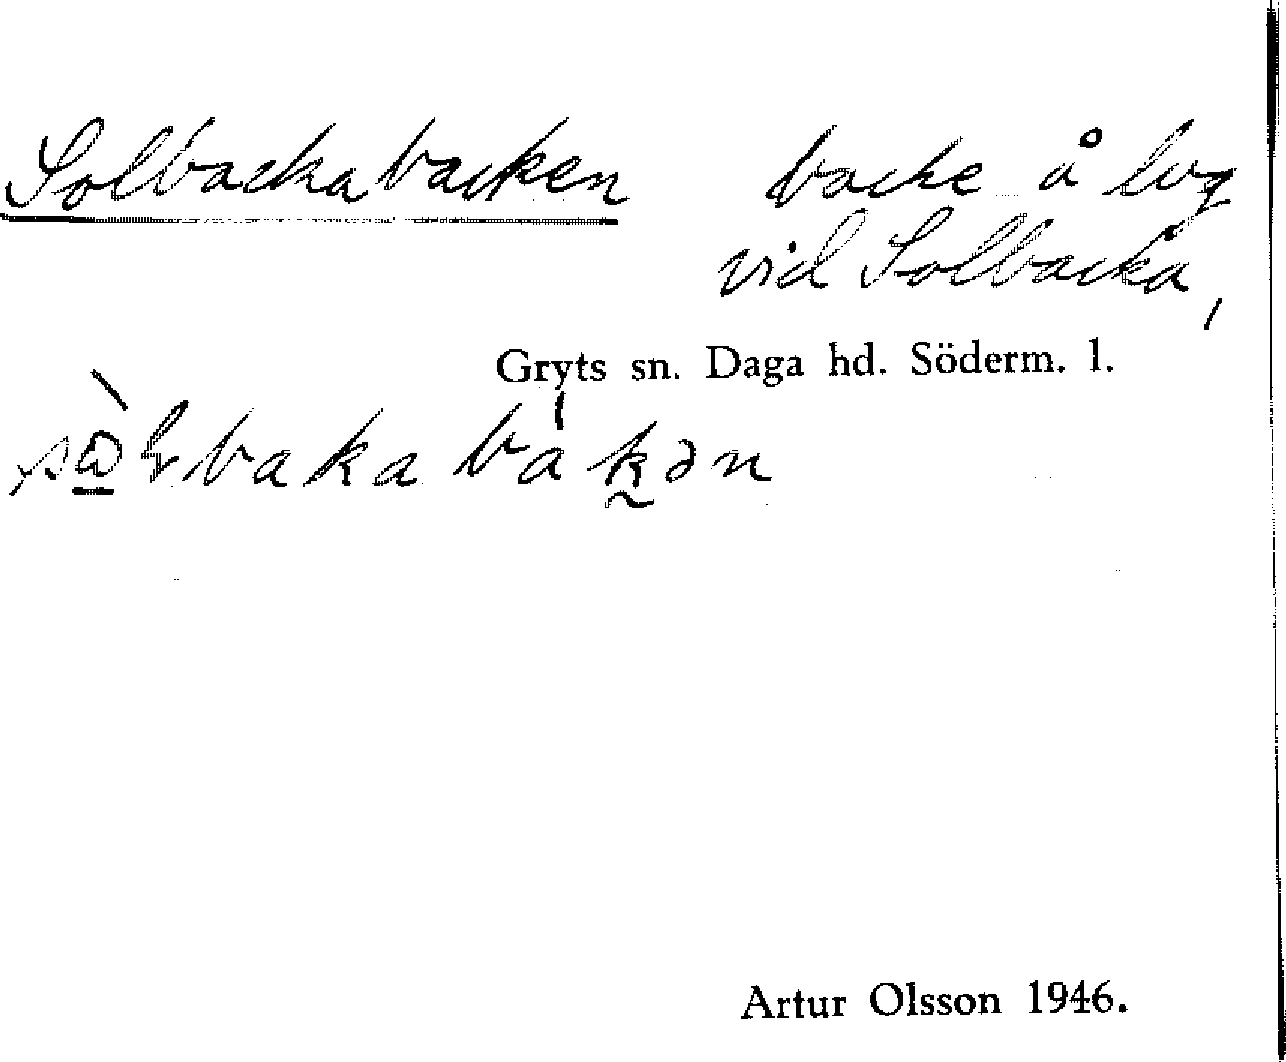 Solbackabacken backe å lvg
vid Solbacka,
Gryts sn. Daga hd. Söderm. l.
Artur Olsson 1946.